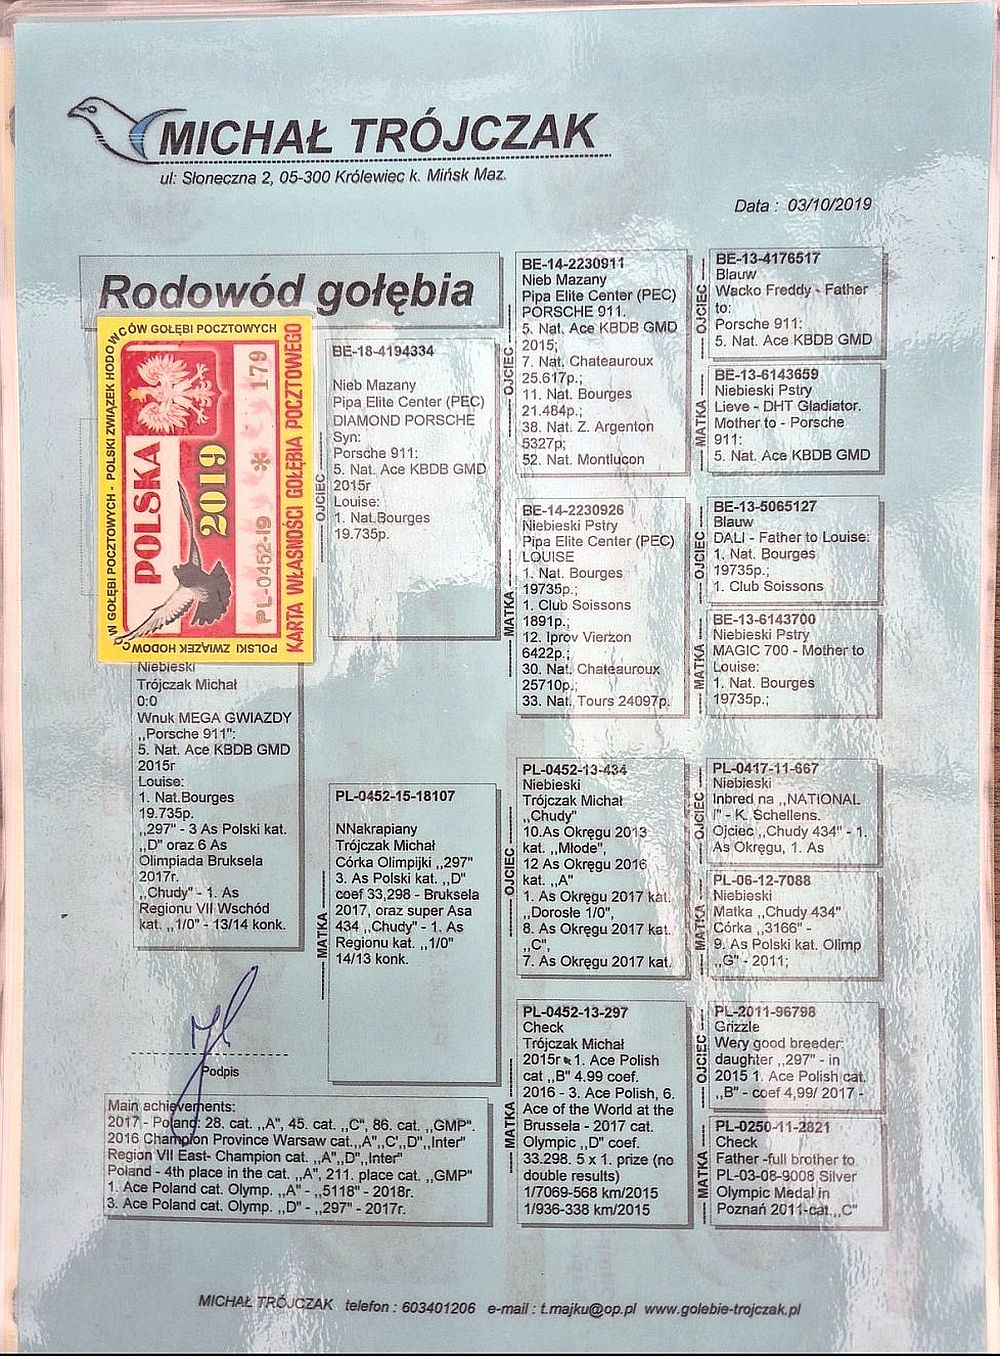 MICHAŁ TRÓJCZAK
ul: Słoneczna 2, 05-300 Królewiec k. Mińsk Maz.
Data : 03/10/2019
Rodowód gołębia
POLSKI ZWIĄZEK HODOWCÓW GOŁĘBI POCZTOWYCH - POLSKI ZWIĄZEK HODOWCÓW GOŁĘBI POCZTOWYCH
POLSKA
2019
PL-0452-19 * 179
KARTA WŁASNOŚCI GOŁĘBIA POCZTOWEGO
Niebieski
Trójczak Michał
0:0
Wnuk MEGA GWIAZDY
,,Porsche 911":
5. Nat. Ace KBDB GMD
2015r
Louise:
1. Nat.Bourges
19.735p.
,,297" - 3 As Polski kat.
,,D" oraz 6 As
Olimpiada Bruksela
2017r.
,,Chudy" - 1. As
Regionu VII Wschód
kat. ,,1/0" - 13/14 konk.
Podpis
OJCIEC
BE-18-4194334
Nieb Mazany
Pipa Elite Center (PEC)
DIAMOND PORSCHE
Syn:
Porsche 911:
5. Nat. Ace KBDB GMD
2015r
Louise:
1. Nat.Bourges
19.735p.
MATKA
PL-0452-15-18107
NNakrapiany
Trójczak Michał
Córka Olimpijki ,,297"
3. As Polski kat. ,,D"
coef 33,298 - Bruksela
2017, oraz super Asa
434 ,,Chudy" - 1. As
Regionu kat. ,,1/0"
14/13 konk.
OJCIEC
BE-14-2230911
Nieb Mazany
Pipa Elite Center (PEC)
PORSCHE 911.
5. Nat. Ace KBDB GMD
2015;
7. Nat. Chateauroux
25.617p.;
11. Nat. Bourges
21.484p.;
38. Nat. Z. Argenton
5327p;
52. Nat. Montlucon
MATKA
BE-14-2230926
Niebieski Pstry
Pipa Elite Center (PEC)
LOUISE
1. Nat. Bourges
19735p.;
1. Club Soissons
1891p.;
12. Iprov Vierzon
6422p.;
30. Nat. Chateauroux
25710p.;
33. Nat. Tours 24097p.
OJCIEC
PL-0452-13-434
Niebieski
Trójczak Michał
,,Chudy"
10.As Okręgu 2013
kat. ,,Młode",
12 As Okręgu 2016
kat. ,,A"
1. As Okręgu 2017 kat.
,,Dorosłe 1/0",
8. As Okręgu 2017 kat.
,,C",
7. As Okręgu 2017 kat.
MATKA
PL-0452-13-297
Check
Trójczak Michał
2015r - 1. Ace Polish
cat ,,B" 4.99 coef.
2016 - 3. Ace Polish, 6.
Ace of the World at the
Brussela - 2017 cat.
Olympic ,,D" coef.
33.298. 5 x 1. prize (no
double results)
1/7069-568 km/2015
1/936-338 km/2015
OJCIEC
BE-13-4176517
Blauw
Wacko Freddy - Father
to:
Porsche 911:
5. Nat. Ace KBDB GMD
MATKA
BE-13-6143659
Niebieski Pstry
Lieve - DHT Gladiator.
Mother to - Porsche
911:
5. Nat. Ace KBDB GMD
OJCIEC
BE-13-5065127
Blauw
DALI - Father to Louise:
1. Nat. Bourges
19735p.;
1. Club Soissons
MATKA
BE-13-6143700
Niebieski Pstry
MAGIC 700 - Mother to
Louise:
1. Nat. Bourges
19735p.;
OJCIEC
PL-0417-11-667
Niebieski
Inbred na ,,NATIONAL
I" - K. Schellens.
Ojciec ,,Chudy 434" - 1.
As Okręgu, 1. As
MATKA
PL-06-12-7088
Niebieski
Matka ,,Chudy 434"
Córka ,,3166" -
9. As Polski kat. Olimp
,,G" - 2011;
OJCIEC
PL-2011-96798
Grizzle
Wery good breeder:
daughter ,,297" - in
2015 1. Ace Polish cat.
,,B" - coef 4,99/ 2017 -
MATKA
PL-0250-11-2821
Check
Father -full brother to
PL-03-08-9008 Silver
Olympic Medal in
Poznań 2011-cat.,,C"
Main achievements:
2017 - Poland: 28. cat. ,,A", 45. cat. ,,C", 86. cat. ,,GMP".
2016 Champion Province Warsaw cat.,,A",,C',,D",,Inter"
Region VII East- Champion cat. ,,A",,D",,Inter"
Poland - 4th place in the cat. ,,A", 211. place cat. ,,GMP"
1. Ace Poland cat. Olymp. ,,A" - ,,5118" - 2018r.
3. Ace Poland cat. Olymp. ,,D" - ,,297" - 2017r.
MICHAŁ TRÓJCZAK telefon : 603401206 e-mail : t.majku@op.pl www.golebie-trojczak.pl